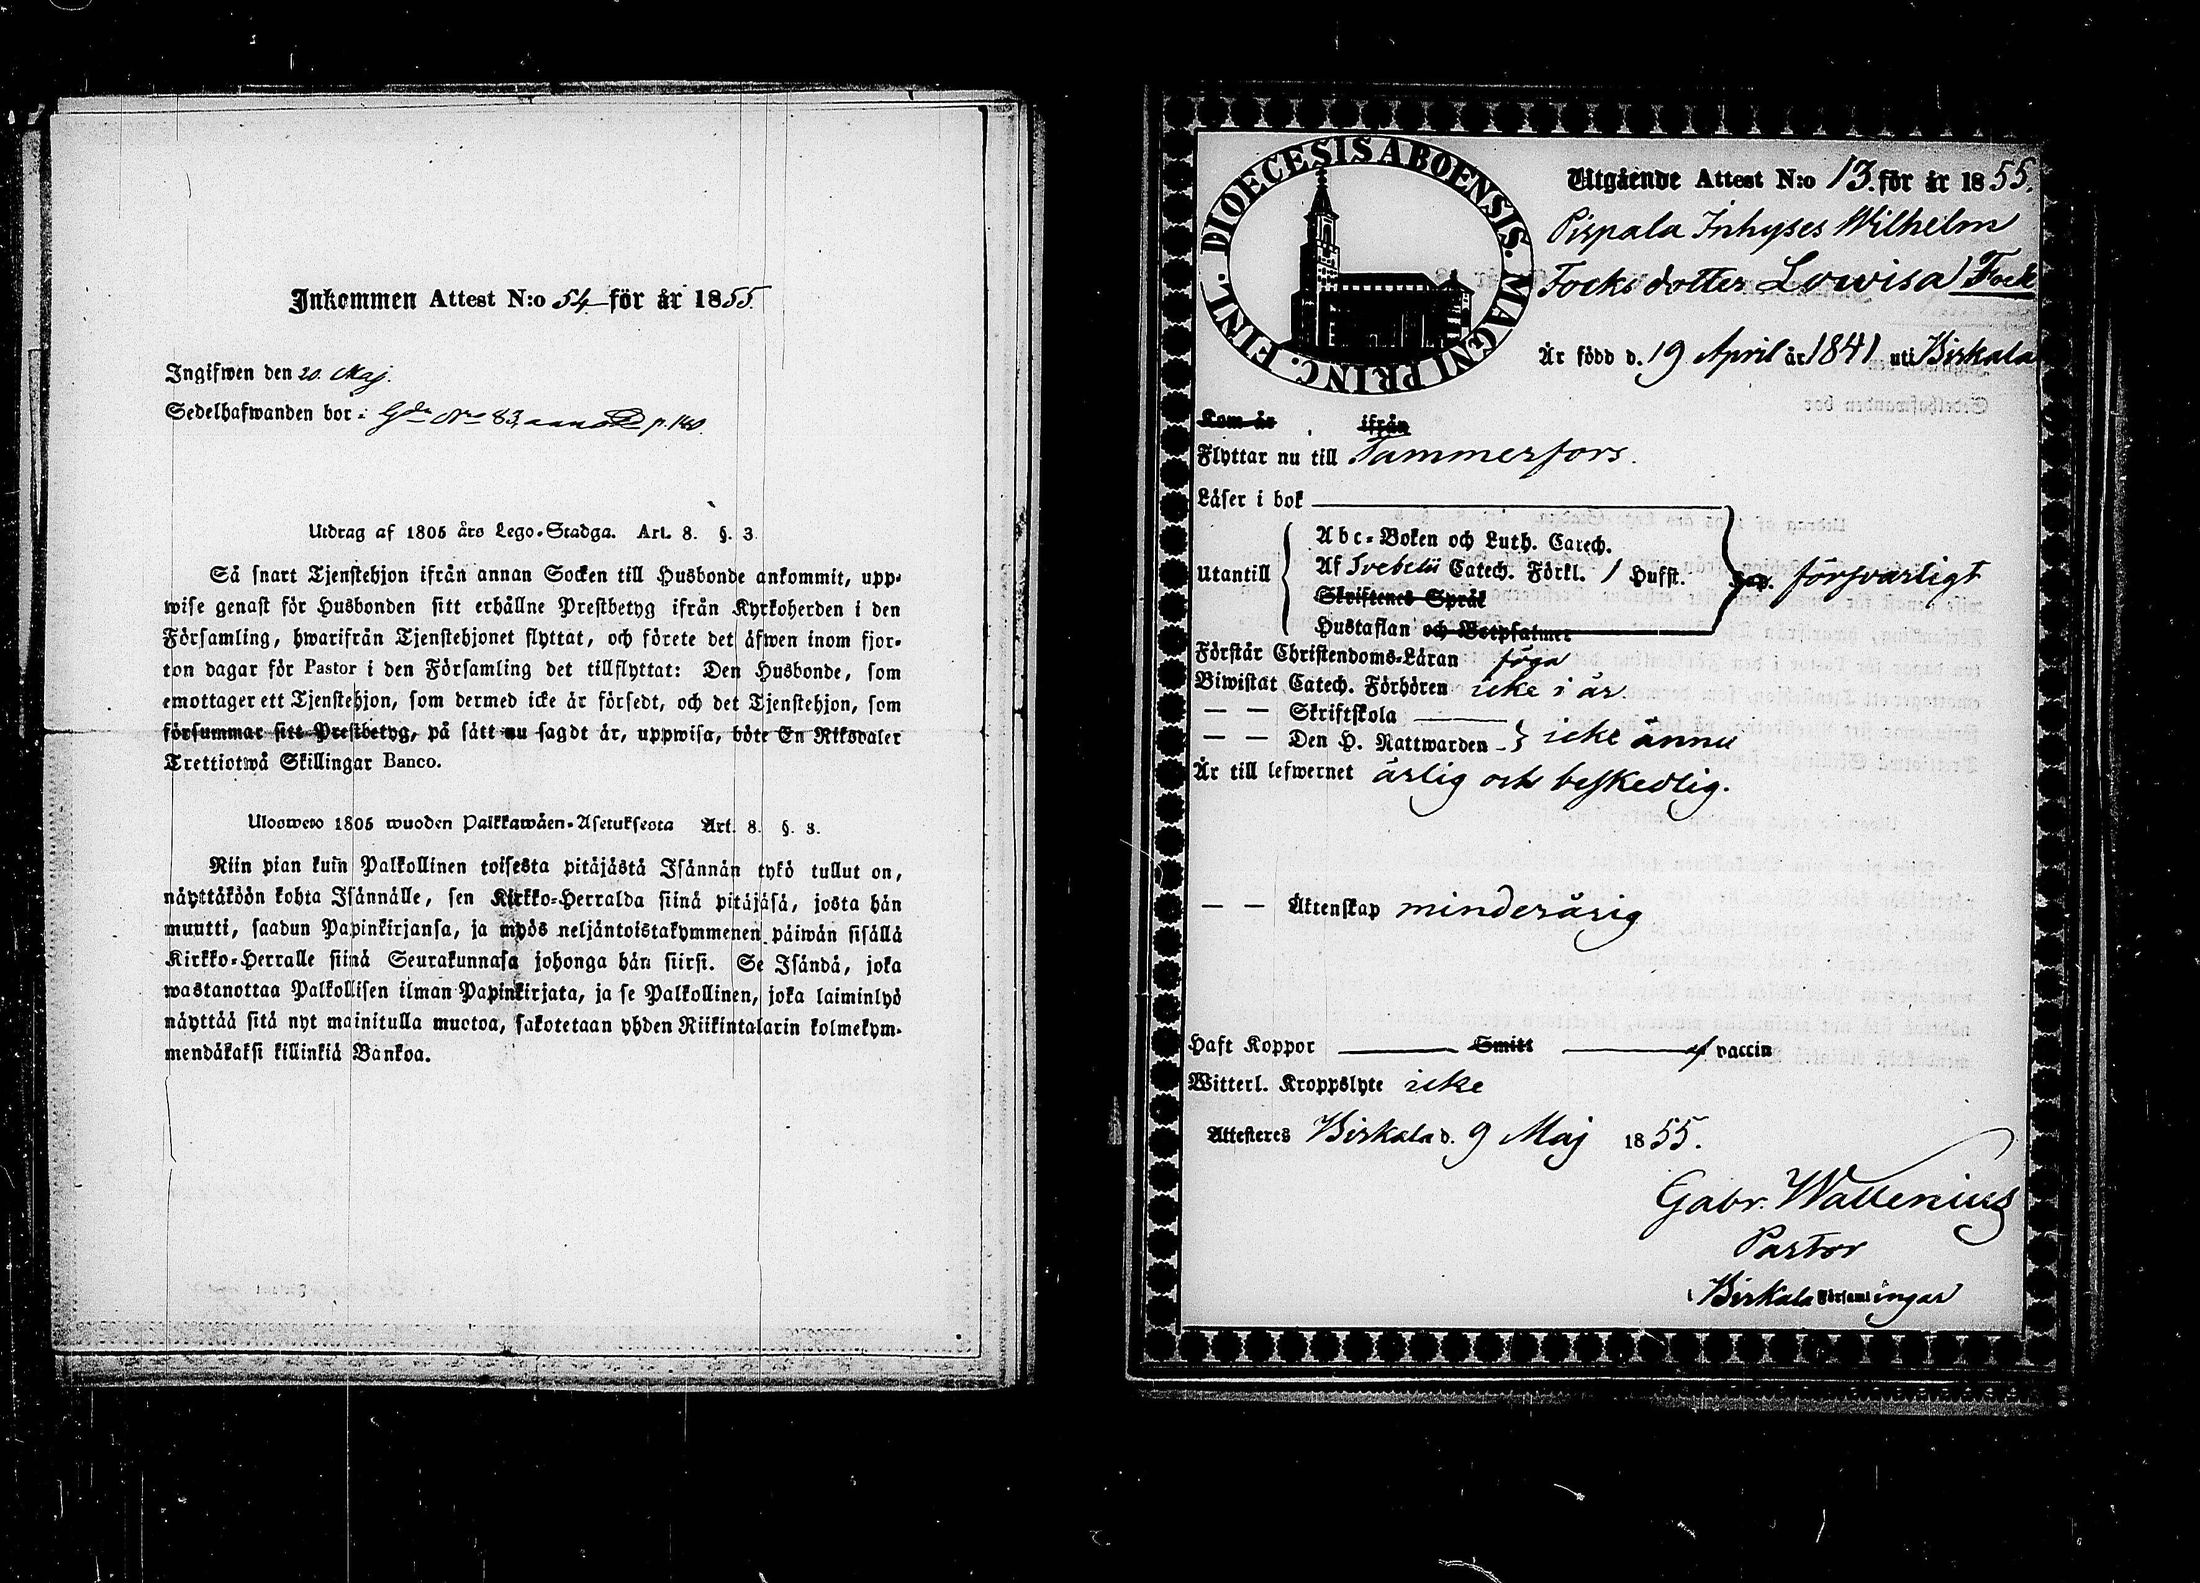 Inkommen Attest N:o 54 för år 1855.
Ingifwen den 20. Maj.
Sedelhafwanden bor i Gdn No 83, p. 180.
Utdrag af 1805 års Lego-Stadga. Art. 8. §. 3.
Så snart Tjenstehjon ifrån annan Socken till Husbonde ankommit, upp-
wise genast för Husbonden sitt erhållne Prestbetyg ifrån Kyrkoherden i den
Församling, hwarifrån Tjenstehjonet flyttat, och förete det äfwen inom fjor-
ton dagar för Pastor i den Församling det tillflyttat: Den Husbonde, som
emottager ett Tjenstehjon, som dermed icke är försedt, och det Tjenstehjon, som
försummar sitt Prestbetyg, på sätt nu sagdt är, uppwisa, böte En Riksdaler
Trettiotwå Skillingar Banco.
Uloswew 1805 wuoden Palkkawäen-Asetuksesta Art. 8. §. 3.
Niin pian kuin Palkollinen toisesta pitäjästä Isännän tykö tullut on,
näyttäköön kohta Isännälle, sen Kirkko-Herralda siinä pitäjäsä, josta hän
muutti, saadun Papinkirjansa, ja myös neljäntoistakymmenen päiwän sisällä
Kirkko-Herralle siinä Seurakunnasa johonga hän siirsi. Se Isändä, joka
wastanottaa Palkollisen ilman Papinkirjata, ja se Palkollinen, joka laiminlyö
näyttää sitä nyt mainitulla muotoa, sakotetaan yhden Riikintalarin kolmekym-
mendäkaksi killinkiä Bankoa.
DIOECESIS ABOENSIS. MAGNI PRINC. FINL.
Utgående Attest N:o 13. för år 1855.
Pispala Inhyses Wilhelm
Focks dotter Lowisa Fock
Är född d. 19 April år 1841 uti Birkala
Kom år ifrån
Flyttar nu till Tammerfors.
Läser i bok
Utantill
Abc-Boken och Luth. Catech.
Af Svebelii Catech. Förkl. 1 Hufst.
Skriftenes Språk
Hustaflan och Botpsalmer
försvarligt
Förstår Christendoms-Läran föga
Biwistat Catech. Förhören icke i år
— — Skriftskola
— — Den H. Nattwarden - } icke ännu
Är till lefwernet ärlig och beskedlig.
— — Äktenskap minderårig
Haft Koppor Smitt af vaccin
Witterl. Kroppslyte icke
Attesteres Birkala d. 9 Maj 1855.
Gabr. Wallenius
Pastor
i Birkala Församlingar